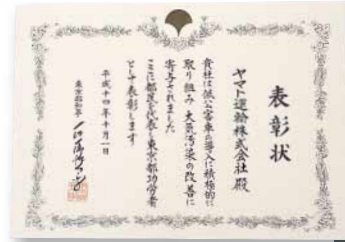 表彰状
ヤマト運輸株式会社殿
貴社は低公害車の導入に積極的に
取り組み 大気汚染の改善に
寄与されました
ここに都民を代表し東京都功労者
として表彰します
平成十四年十月一日
東京都知事